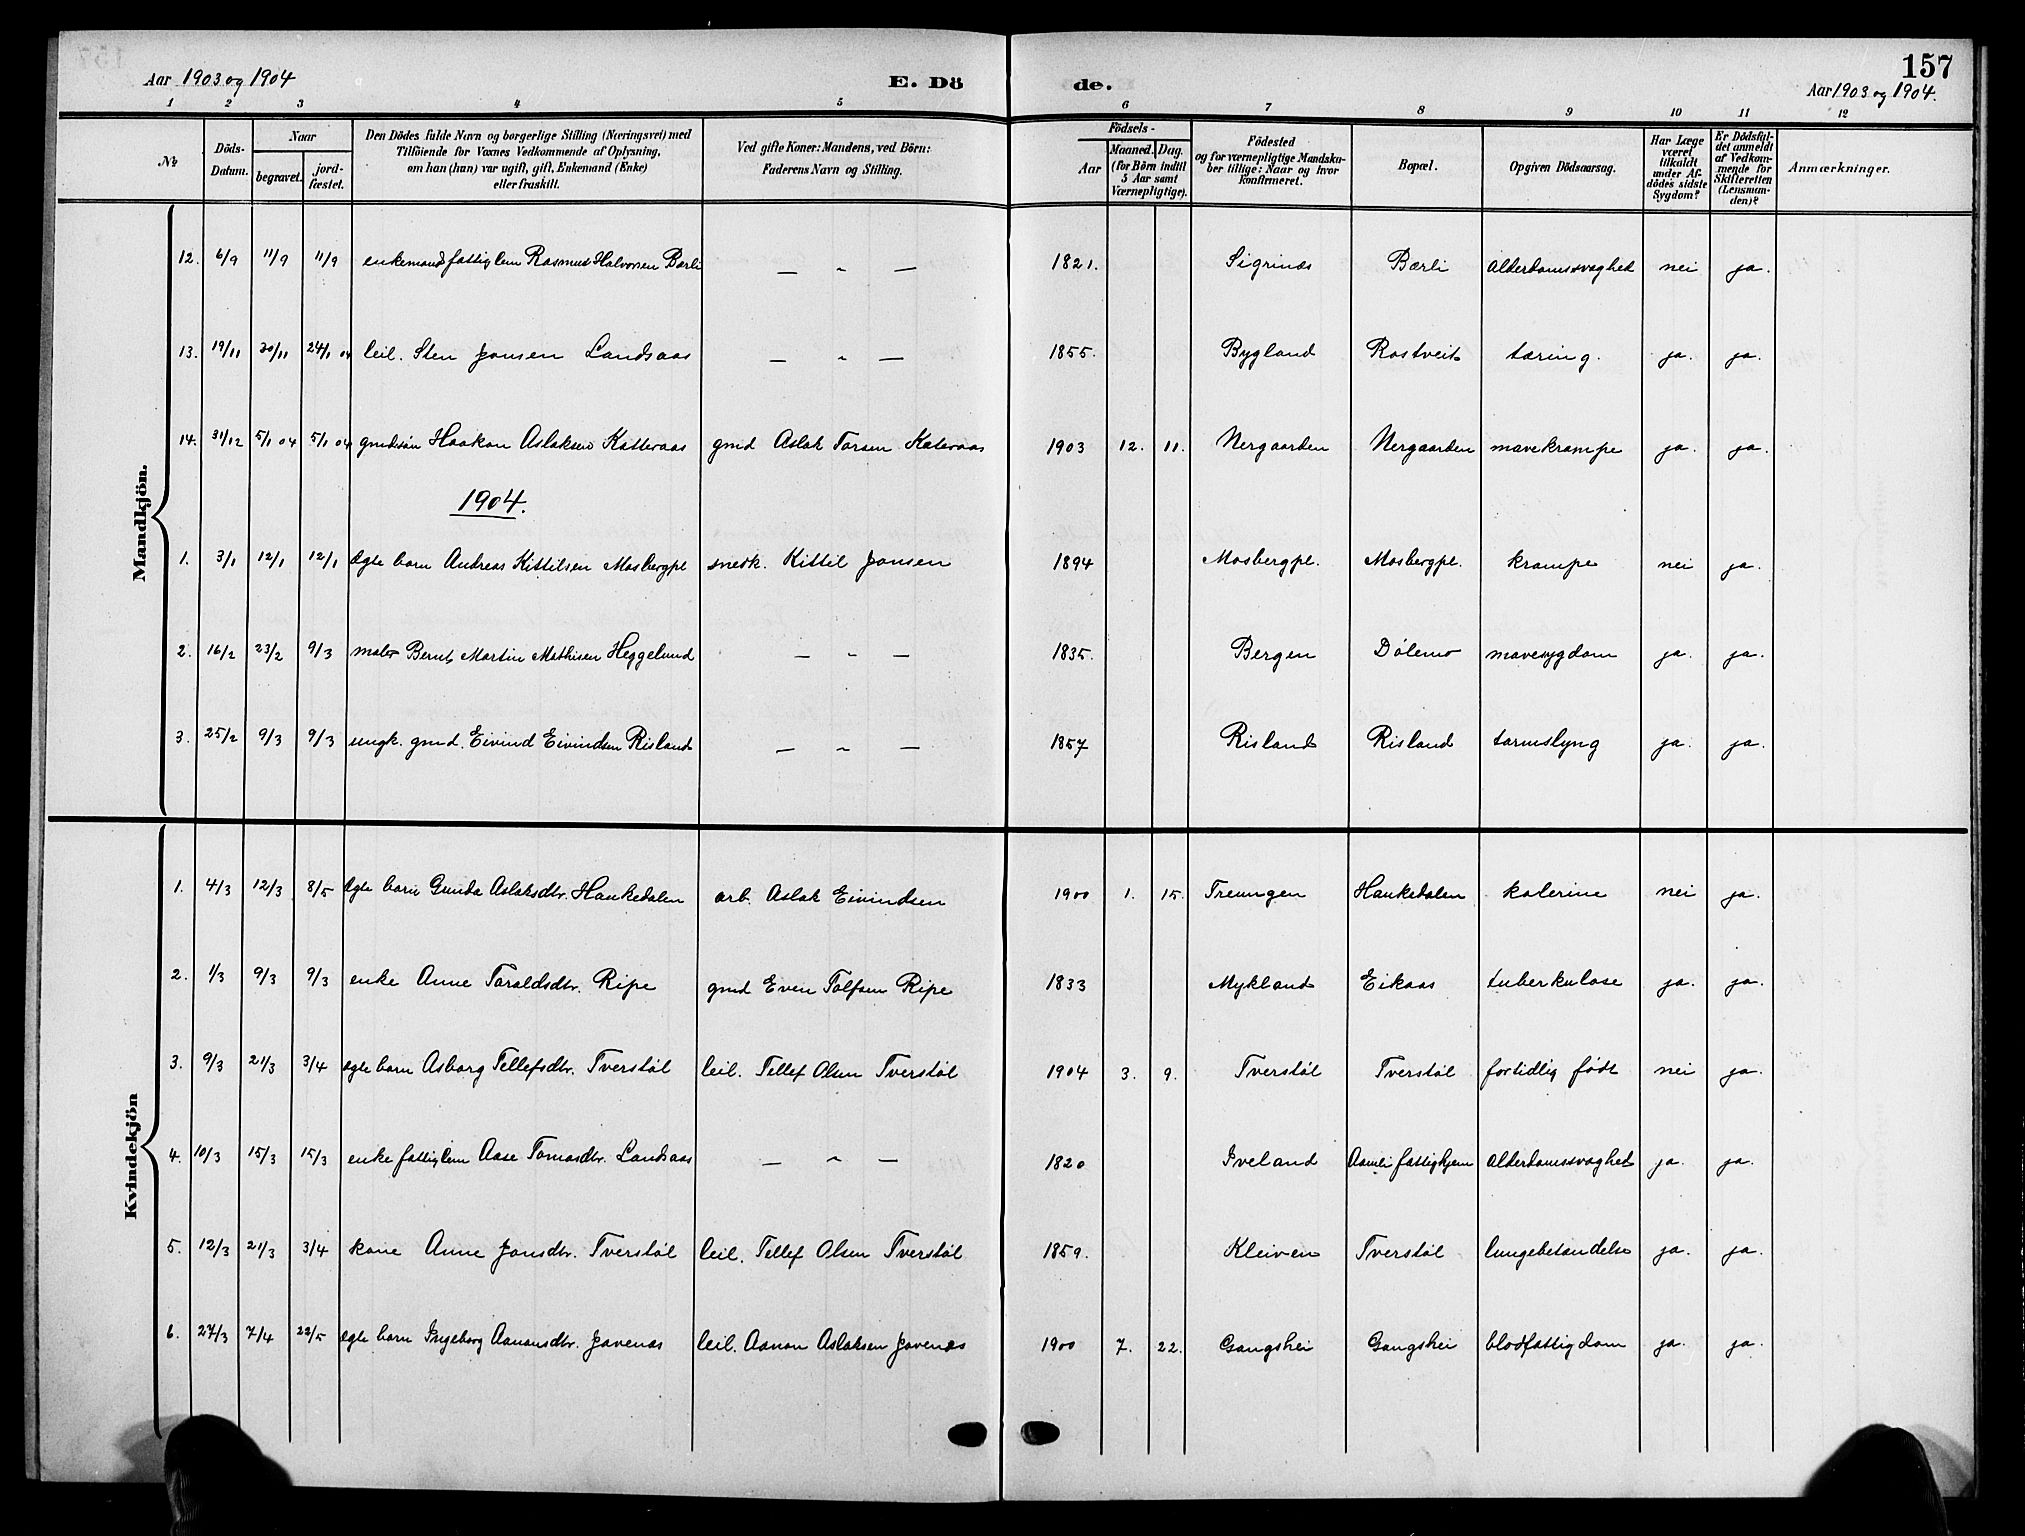 157
Aar 1903 og 1904
E. Dö
de.
Aar 1903 og 1904.
1 2 3 4 5 6 7 8 9 10 11 12
№
Döds-Datum.
Naar
begravet.
jord-fæstet.
Den Dödes fulde Navn og borgerlige Stilling (Næringsvei) med
Tilföiende for Voxnes Vedkommende af Oplysning,
om han (hun) var ugift, gift, Enkemand (Enke)
eller fraskilt.
Ved gifte Koner: Mandens, ved Börn:
Faderens Navn og Stilling.
Födsels-
Aar
Maaned. Dag.
(for Börn indtil
5 Aar samt
Værnepligtige).
Födested
og for værnepligtige Mandska-
ber tillige: Naar og hvor
konfirmeret.
Bopæl.
Opgiven Dödsaarsag.
Har Læge
været
tilkaldt
under Af-
dödes sidste
Sygdom?
Er Dödsfal-
det anmeldt
af Vedkom-
mende for
Skifteretten
(Lensman-
den)?
Anmærkninger.
Mandkjön.
12. 6/9 11/9 11/9 enkemand fattiglem Rasmus Halvorsen Bærli — „ — 1821. Sigrinæs Bærli alderdomssvaghed nei ja.
13. 19/11 30/11 24/1 04 leil. Sten Jonsen Landsaas — „ — 1855. Bygland Rostveit tæring. ja. ja.
14. 31/12 5/1 04 5/1 04 gmdsøn Haakon Aslaksen Katteraas gmd Aslak Torsen Kateraas 1903 12. 11. Nergaarden Nergaarden mavekrampe ja. ja.
1904.
1. 3/1 12/1 12/1 ægte barn Andreas Kittilsen Mosbergpl snedk. Kittil Jonsen 1894 Mosbergpl. Mosbergpl. krampe nei ja.
2. 16/2 23/2 9/3 maler Bernt Martin Mathisen Heggelund — „ — 1835. Bergen Dølemo mavesygdom ja. ja.
3. 25/2 9/3 9/3 ungk. gmd. Eivind Eivindsen Risland — „ — 1857 Risland Risland tarmslyng ja. ja.
Kvindekjön
1. 4/3 12/3 8/5 ægte barn Gunda Aslaksdtr. Haukedalen arb. Aslak Eivindsen 1900 1. 15. Treungen Haukedalen kolerine nei ja.
2. 1/3 9/3 9/3 enke Anne Taraldsdtr. Ripe gmd Even Tolfsen Ripe 1833 Mykland Eikaas tuberkulose ja. ja.
3. 9/3 21/3 3/4 ægte barn Asborg Tellefsdtr. Tverstøl leil. Tellef Olsen Tverstøl 1904 3. 9. Tverstøl Tverstøl fortidlig født nei ja.
4. 10/3 15/3 15/3 enke fattiglem Aase Tomasdtr. Landsaas — „ — 1820 Iveland Aamli fattighjem alderdomssvaghed ja. ja.
5. 12/3 21/3 3/4 kone Anne Jonsdtr. Tverstøl leil. Tellef Olsen Tverstøl 1859. Kleiven Tverstøl lungebetændelse ja. ja.
6. 27/3 7/4 22/5 ægte barn Ingeborg Aanonsdtr. Jovenæs leil. Aanon Aslaksen Jovenæs 1900 7. 22. Gangshei Gangshei blodfattigdom ja. ja.